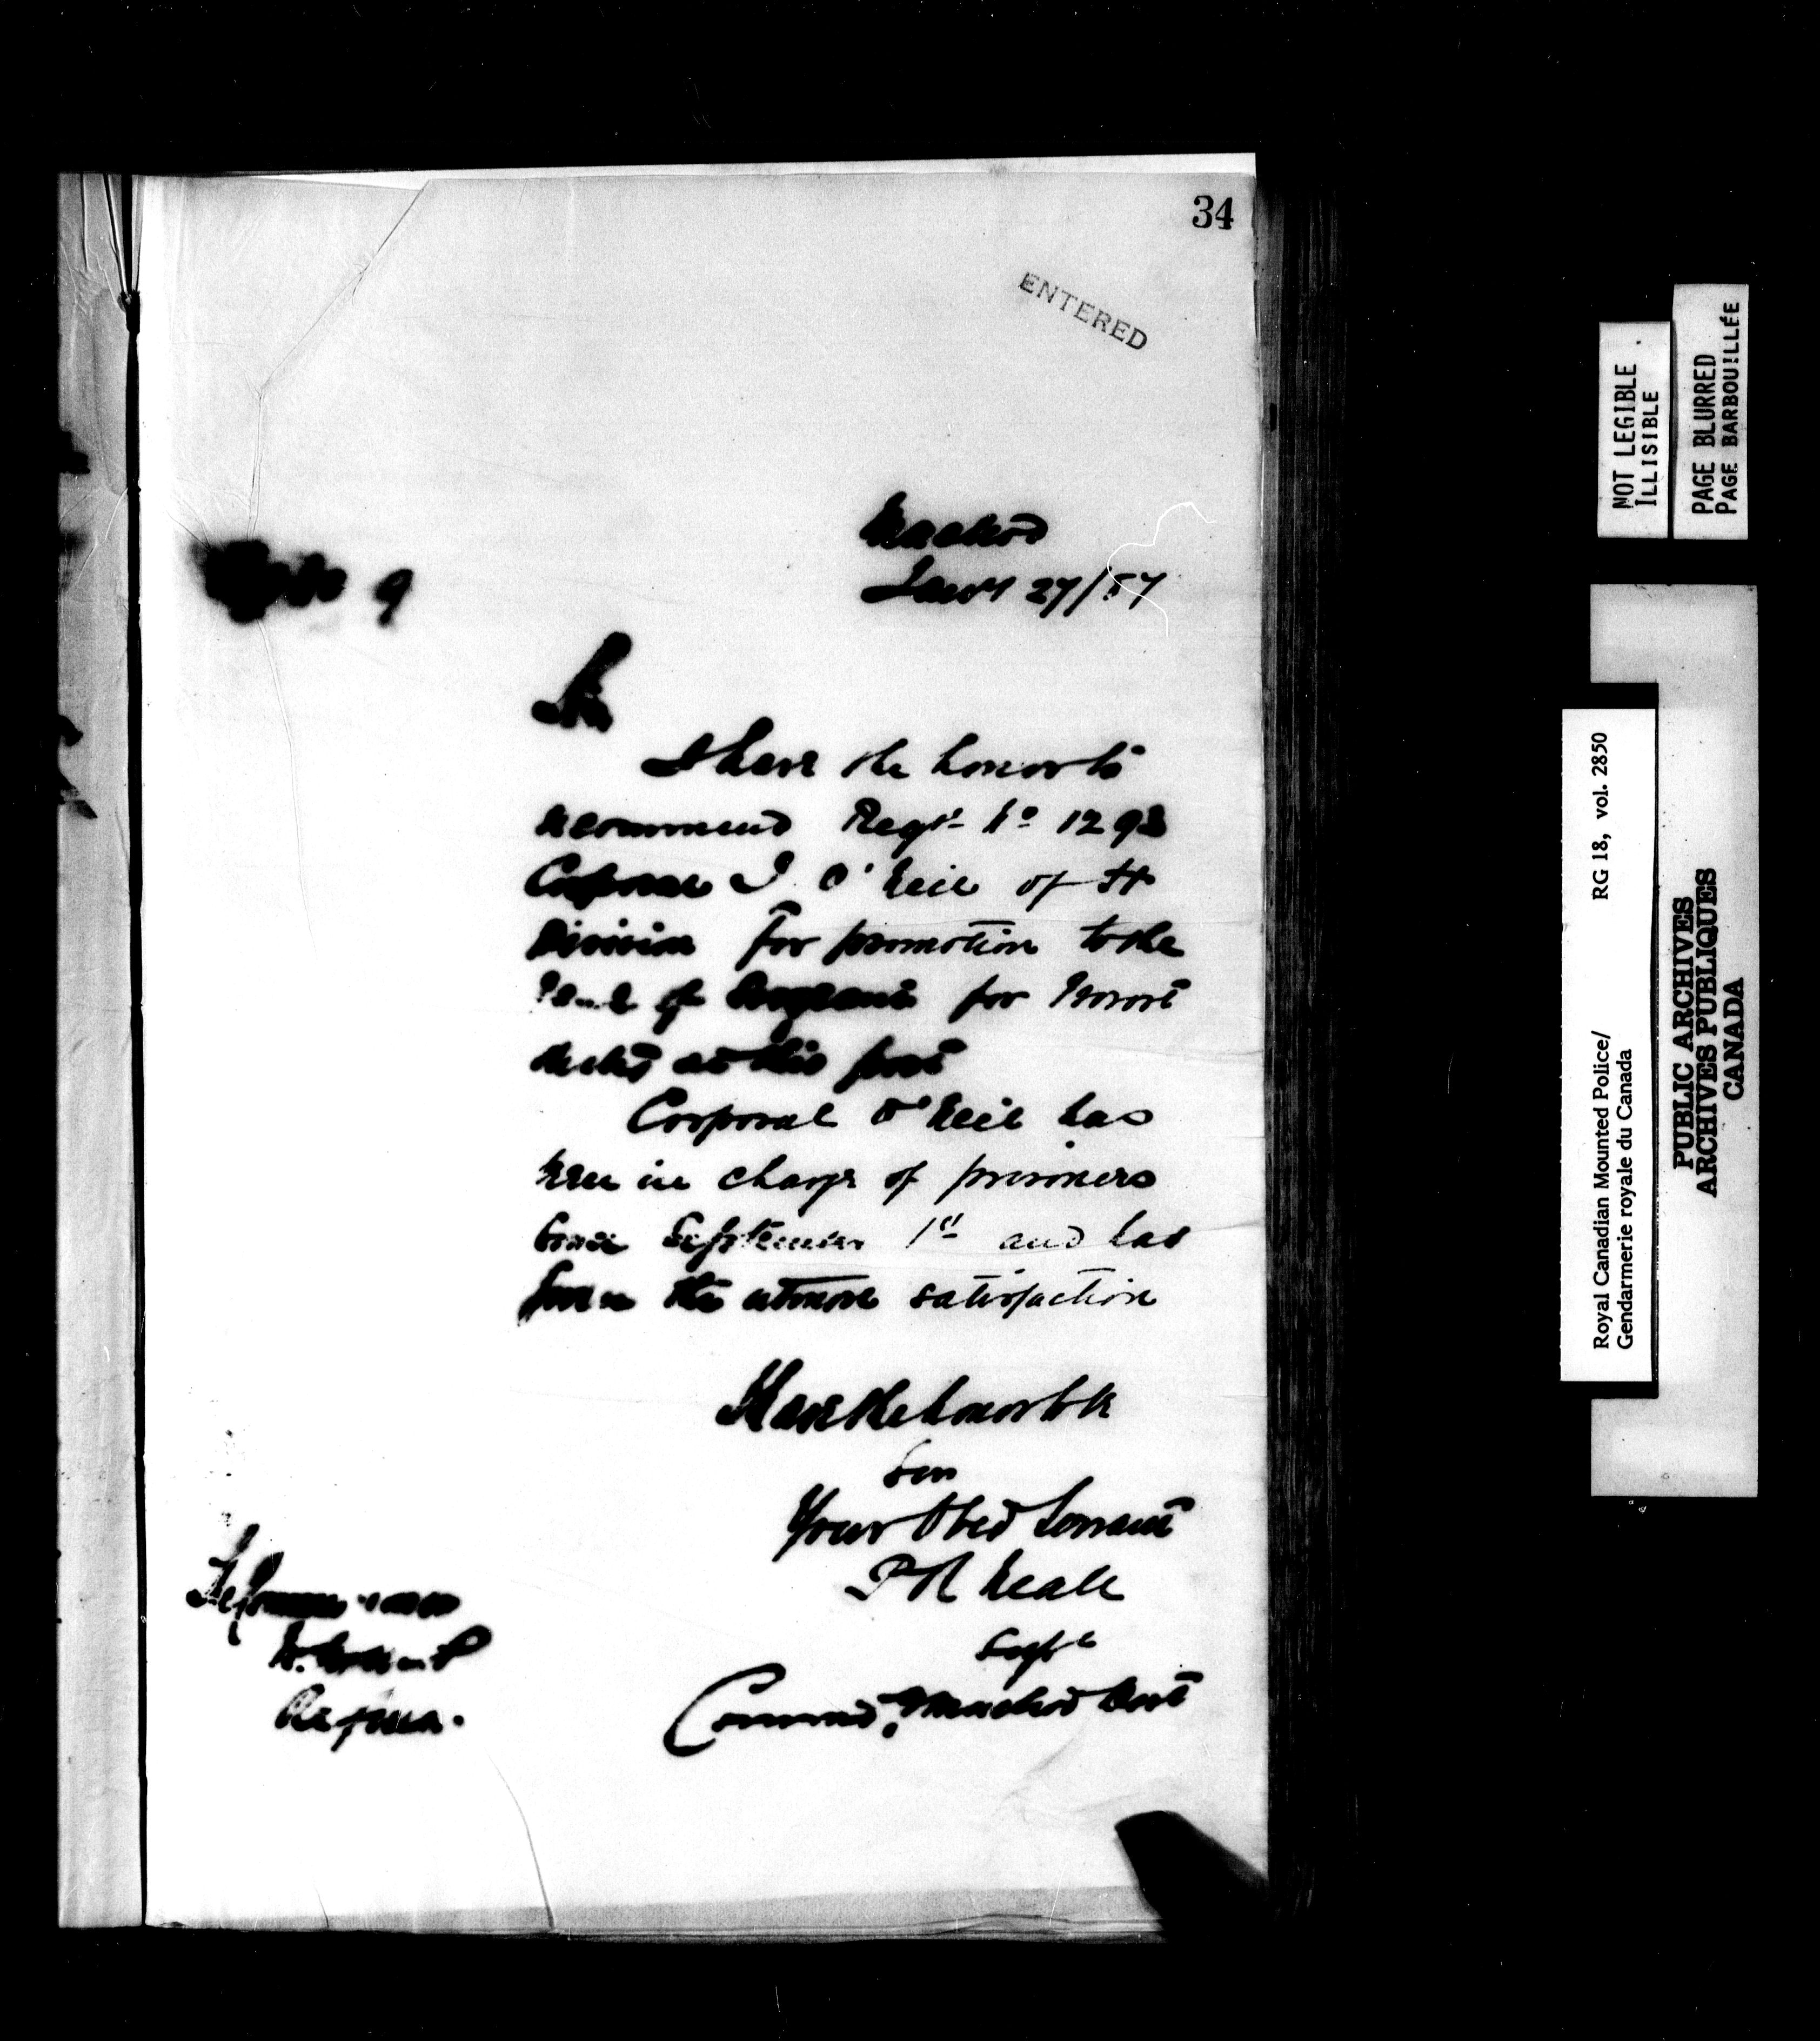 34
ENTERED
Macleod
Jany 27/87
9
Sir
I have the honor to
recommend Regt. No 1293
Corporal J. O'Neil of H
Division for promotion to the
rank of Sergeant for Provost
duties at this post
Corporal O'Neil has
been in charge of prisoners
since September 1st and has
given the utmost satisfaction
I have the honor to be
Sir
Your Obed Servant
P R Neale
Supt
Command. Macleod Dist
The Commissioner
N.W.M.P
Regina.
NOT LEGIBLE
ILLISIBLE
PAGE BLURRED
PAGE BARBOUILLÉE
Royal Canadian Mounted Police/ RG 18, vol. 2850
Gendarmerie royale du Canada
PUBLIC ARCHIVES
ARCHIVES PUBLIQUES
CANADA